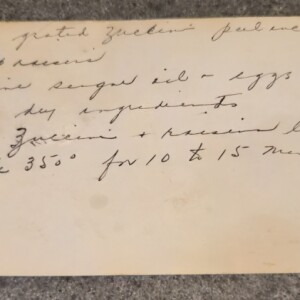 grated Zuccini peel on
raisins
ne sugar oil + eggs
dry ingredients
Zuccini + raisin l
e 350° for 10 to 15 Min